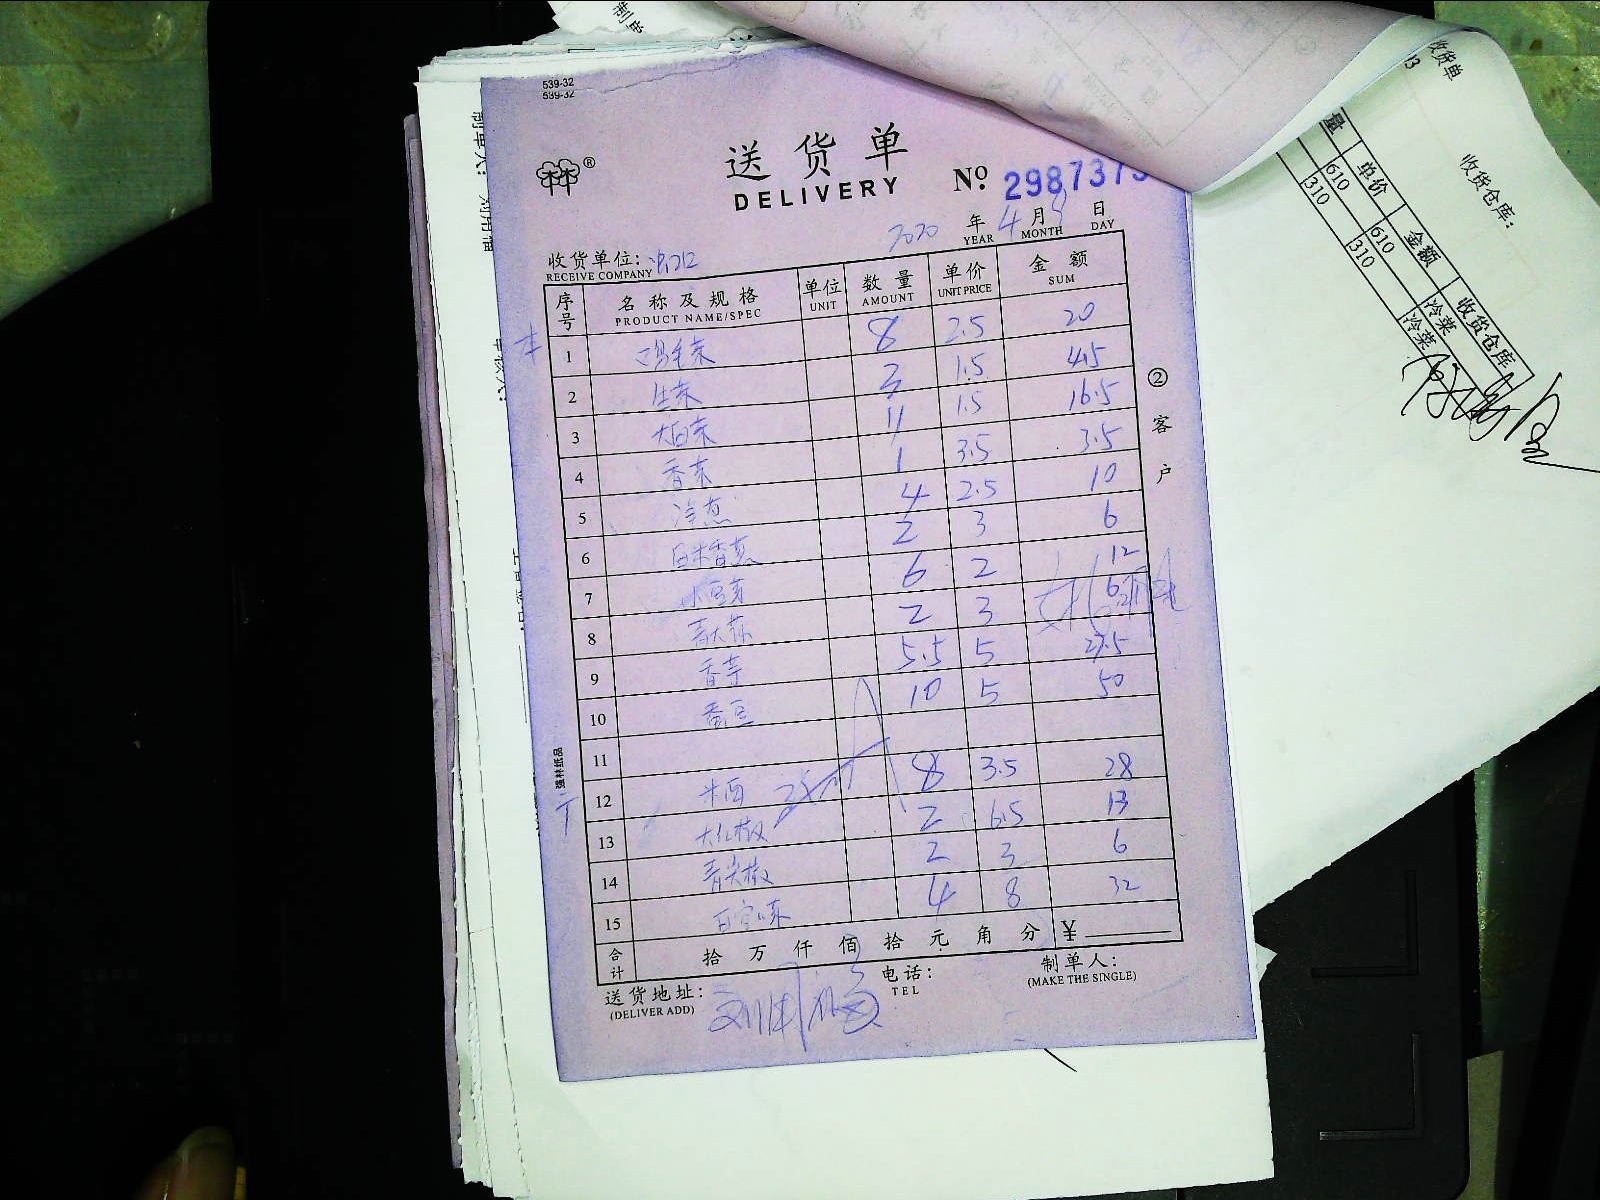 制单
539-32
539-32
林林®
送货单
DELIVERY
No. 298737
2020 年 4 月 9 日
YEAR MONTH DAY
收货单位:
RECEIVE COMPANY
序号 名称及规格 单位 数量 单价 金额
PRODUCT NAME/SPEC UNIT AMOUNT UNIT PRICE SUM
1 鸡毛菜 8 2.5 20
2 生菜 3 1.5 4.5
3 大白菜 11 1.5 16.5
4 香菜 1 3.5 3.5
5 洋葱 4 2.5 10
6 白米香葱 2 3 6
7 小豆芽 6 2 12
8 青大蒜 2 3 6
9 香芋 5.5 5 27.5
10 蚕豆 10 5 50
11
12 米酒 8 3.5 28
13 大红椒 2 6.5 13
14 青尖椒 2 3 6
15 4 8 32
合计 拾 万 仟 佰 拾 元 角 分 ¥
送货地址: 电话: 制单人:
(DELIVER ADD) TEL (MAKE THE SINGLE)
②客户
强林纸品
收货单
13
收货仓库:
量 单价 金额 收货仓库
610 610 冷菜
310 310 冷菜